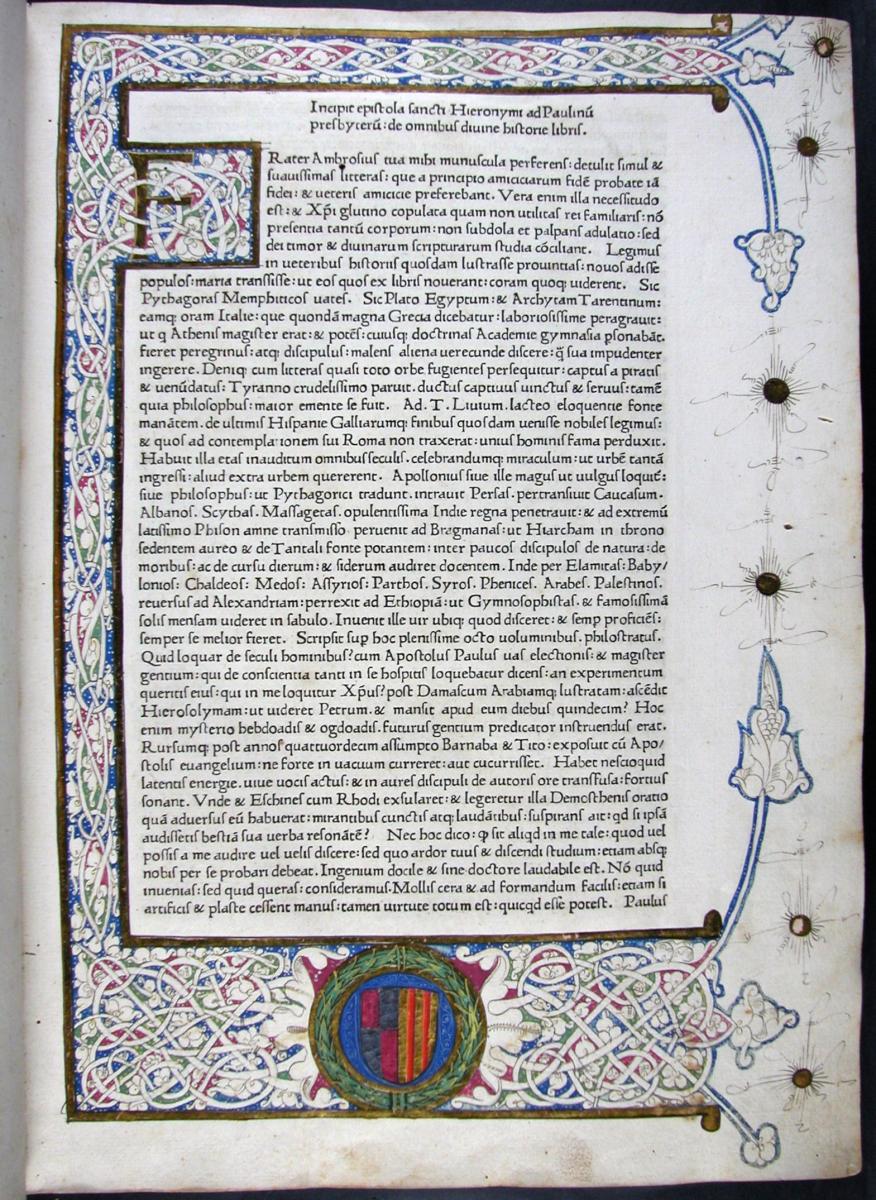 Incipit epistola sancti Hieronymi ad Paulinū
presbyterū: de omnibus diuine historie libris.
FRater Ambrosius tua mihi munuscula perferens: detulit simul &
suauissimas litteras: que a principio amiciciarum fidē probate iā
fidei: & ueteris amicicie preferebant. Vera enim illa necessitudo
est: & Xp̄i glutino copulata quam non utilitas rei familiaris: nō
presentia tantū corporum: non subdola et palpans adulatio: sed
dei timor & diuinarum scripturarum studia cōciliant. Legimus
in ueteribus historiis quosdam lustrasse prouintias: nouos adisse
populos: maria transisse: ut eos quos ex libris nouerant: coram quoq; uiderent. Sic
Pythagoras Memphiticos uates. Sic Plato Egyptum: & Archytam Tarentinum:
eamq; oram Italie: que quondā magna Grecia dicebatur: laboriosissime peragrauit:
ut q Athenis magister erat: & potēs: cuiusq; doctrinas Academie gymnasia psonabāt.
fieret peregrinus: atq; discipulus: malens aliena uerecunde discere: q̄ sua impudenter
ingerere. Deniq; cum litteras quasi toto orbe fugientes persequitur: captus a piratis
& uenūdatus: Tyranno crudelissimo paruit. ductus captiuus uinctus & seruus: tamē
quia philosophus: maior emente se fuit. Ad. T. Liuium. lacteo eloquentie fonte
manātem. de ultimis Hispanie Galliarumq; finibus quosdam uenisse nobiles legimus:
& quos ad contemplationem sui Roma non traxerat: unius hominis fama perduxit.
Habuit illa etas inauditum omnibus seculis. celebrandumq; miraculum: ut urbē tantā
ingressi: aliud extra urbem quererent. Apollonius siue ille magus ut uulgus loquit̄:
siue philosophus: ut Pythagorici tradunt. intrauit Persas. pertransiuit Caucasum.
Albanos. Scythas. Massagetas. opulentissima Indie regna penetrauit: & ad extremū
latissimo Phison amne transmisso peruenit ad Bragmanas: ut Hiarcham in throno
sedentem aureo & de Tantali fonte potantem: inter paucos discipulos de natura: de
moribus: ac de cursu dierum: & siderum audiret docentem. Inde per Elamitas: Baby/
lonios: Chaldeos: Medos: Assyrios: Parthos. Syros. Phenices. Arabes. Palestinos.
reuersus ad Alexandriam: perrexit ad Ethiopiā: ut Gymnosophistas. & famosissimā
solis mensam uideret in sabulo. Inuenit ille uir ubiq; quod disceret: & semp proficiēs:
semper se melior fieret. Scripsit sup hoc plenissime octo uoluminibus. philostratus.
Quid loquar de seculi hominibus? cum Apostolus Paulus uas electionis: & magister
gentium: qui de conscientia tanti in se hospitis loquebatur dicens: an experimentum
queritis eius: qui in me loquitur Xp̄us? post Damascum Arabiamq; lustratam: ascēdit
Hierosolymam: ut uideret Petrum. & mansit apud eum diebus quindecim? Hoc
enim mysterio hebdoadis & ogdoadis. futurus gentium predicator instruendus erat.
Rursumq; post annos quattuordecim assumpto Barnaba & Tito: exposuit cū Apo/
stolis euangelium: ne forte in uacuum curreret: aut cucurrisset. Habet nescioquid
latentis energie. uiue uocis actus: & in aures discipuli de autoris ore transfusa: fortius
sonant. Vnde & Eschines cum Rhodi exsularet: & legeretur illa Demosthenis oratio
quā aduersus eū habuerat: mirantibus cunctis atq; laudātibus: suspirans ait: qd si ipsā
audissetis bestiā sua uerba resonātē? Nec hoc dico: ꝙ sit aliqd in me tale: quod uel
possis a me audire uel uelis discere: sed quo ardor tuus & discendi studium: etiam absq;
nobis per se probari debeat. Ingenium docile & sine doctore laudabile est. Nō quid
inuenias: sed quid queras: consideramus. Mollis cera & ad formandum facilis: etiam si
artificis & plaste cessent manus: tamen uirtute totum est: quicqd esse potest. Paulus